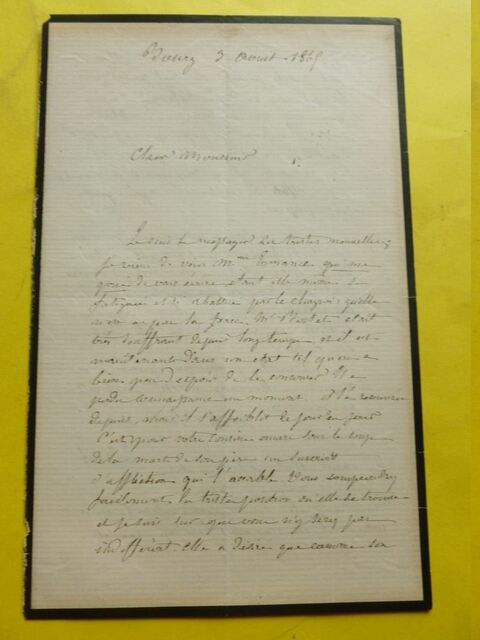 3 Aoust 186
Cher Monsieur
Je suis le messager des tristes nouvelles,
je viens de voir Mme qui me
de vous écrire étant elle même si
fatiguée et si abattue par le chagrin qu'elle
n'en a pas la force. Mr était
très souffrant depuis longtemps et il est
maintenant dans un état tel qu'on a
bien peu d'espoir de le conserver. Il a
perdu connaissance un moment, et l'a recouvré
depuis, mais il s'affaiblit de jour en jour
C'est pour votre cousine encore sous le coup
de la mort de son père un surcroit
d'affliction qui l'accable. Vous comprendrez
facilement la triste position où elle se trouve
et je suis sur que vous n'y serez pas
indifférent. Elle a désiré que comme son